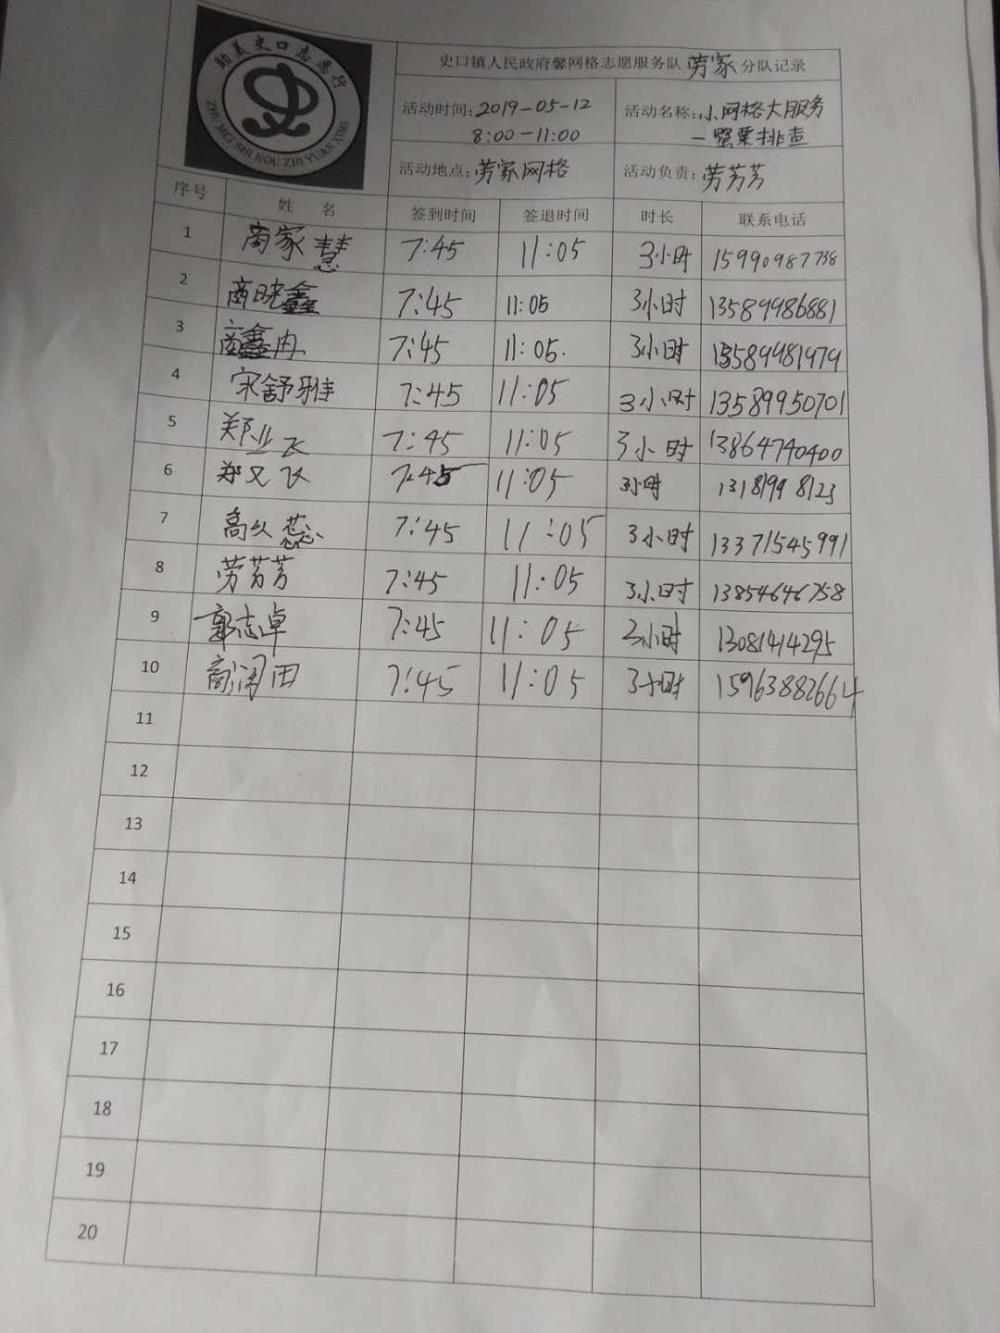 助美史口志愿行
ZHU MEI SHI KOU ZHI YUAN XING
史口镇人民政府馨网格志愿服务队 劳家 分队记录
活动时间: 2019-05-12 活动名称: 小网格大服务
8:00-11:00 —罂粟排查
活动地点: 劳家网格 活动负责: 劳芳芳
序号 姓 名 签到时间 签退时间 时长 联系电话
1 商家慧 7:45 11:05 3小时 15990987738
2 商晓鑫 7:45 11:05 3小时 13589986881
3 商鑫冉 7:45 11:05. 3小时 13589981979
4 宋舒雅 7:45 11:05 3小时 13589950701
5 郑业飞 7:45 11:05 3小时 13864740400
6 郑文飞 7:45 11:05 3小时 13181998123
7 高从蕊 7:45 11:05 3小时 13371545991
8 劳芳芳 7:45 11:05 3小时 13854646758
9 郭志卓 7:45 11:05 3小时 13081414295
10 商润田 7:45 11:05 3小时 15963882664
11
12
13
14
15
16
17
18
19
20